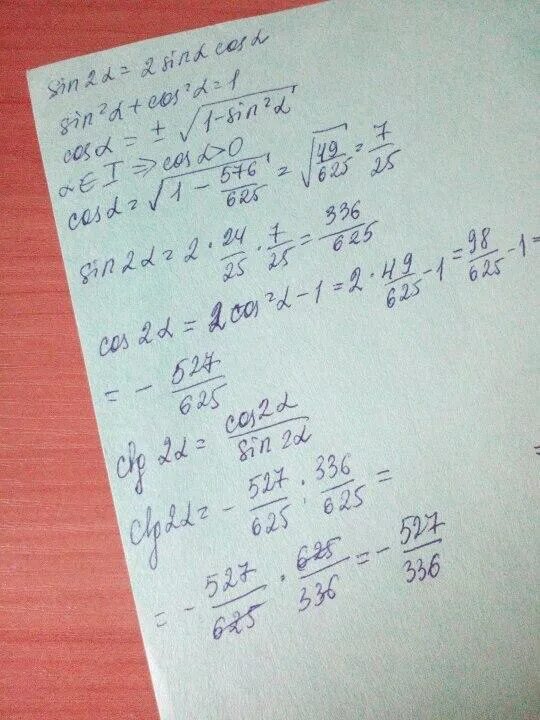 sin2α = 2 sinα cosα
sin²α + cos²α = 1
cosα = ± √(1-sin²α)
α ∈ I ⇒ cosα > 0
cosα = √(1 - 576/625) = √(49/625) = 7/25
sin2α = 2 · 24/25 · 7/25 = 336/625
cos2α = 2cos²α - 1 = 2 · 49/625 - 1 = 98/625 - 1 =
= - 527/625
ctg 2α = cos2α/sin2α
ctg2α = - 527/625 : 336/625 =
= - 527/625 · 625/336 = - 527/336